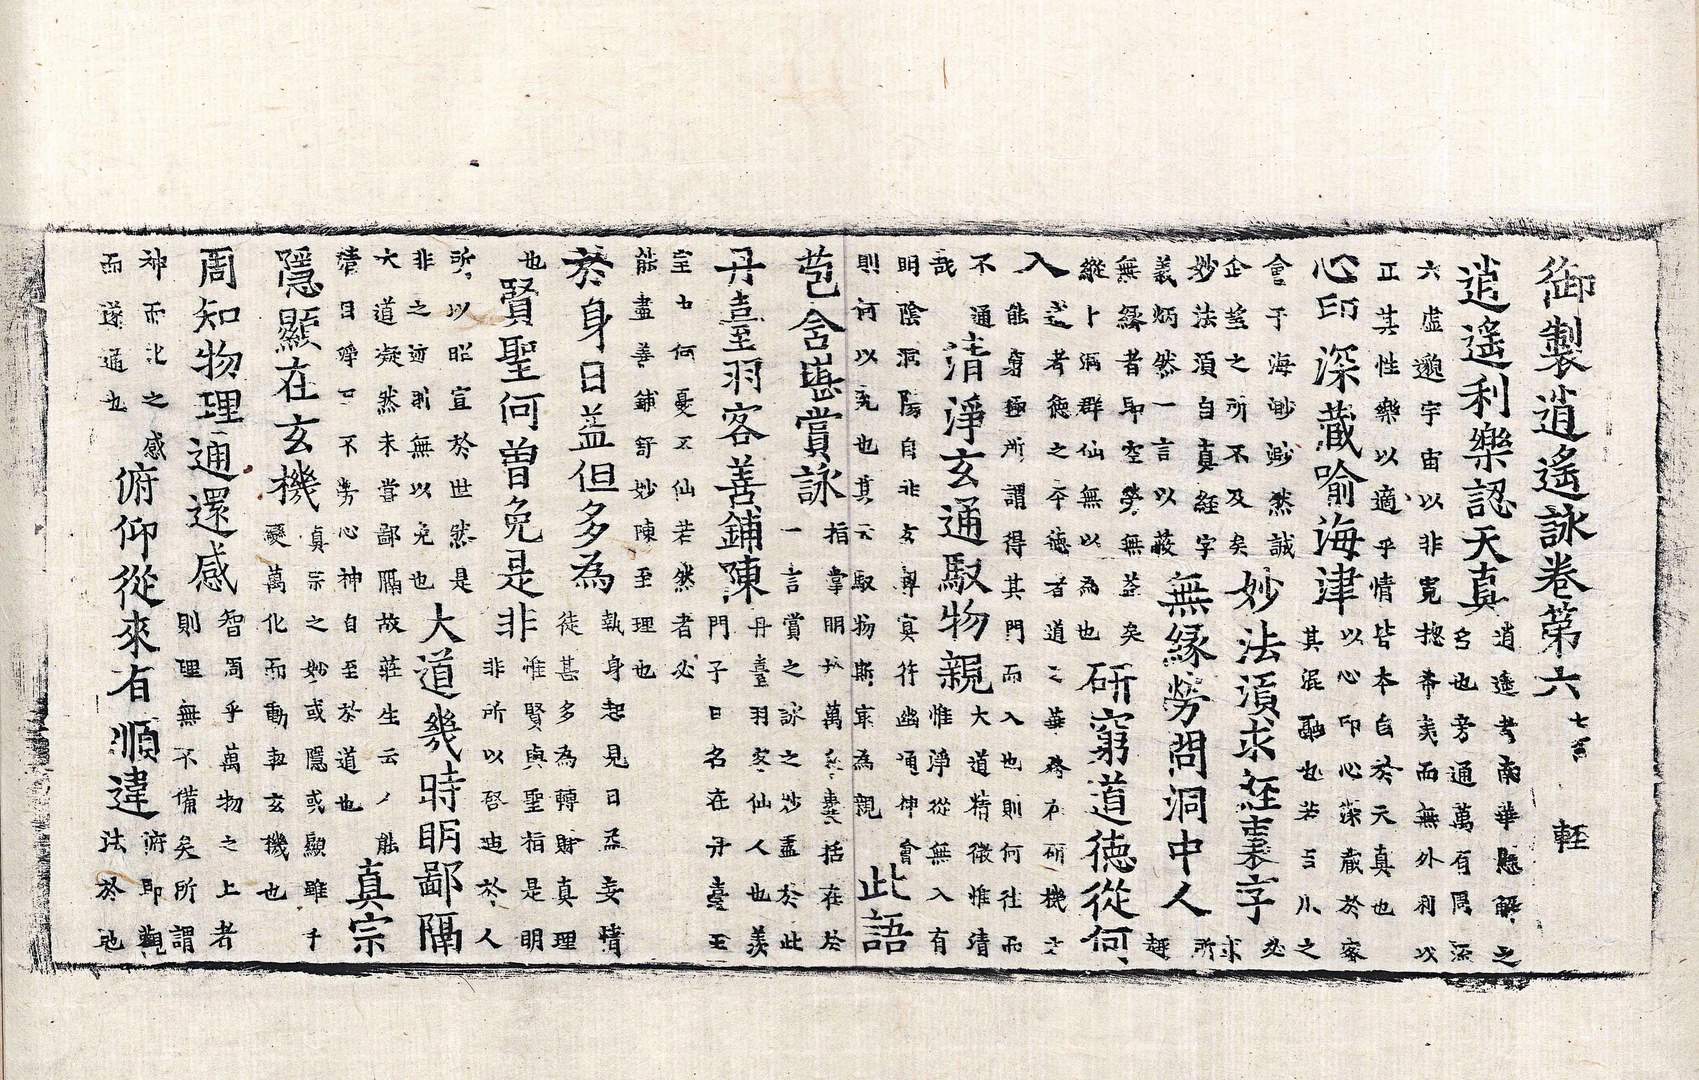 御製逍遙詠卷第六 七言 輕
逍遙利樂認天真 逍遙者南華懸解之
名也旁通萬有周流
六虛邈宇宙以非寬揔希夷而無外利以
正其性樂以適乎情皆本自於天真也
心印深藏喻海津 以心印心深藏於密
其混融也若百川之
會于海渺渺然誠
企望之所不及矣 妙法湏求經裏字 必
求
妙法湏自真經字
義炳然一言以蔽 無緣勞問洞中人 所
趣
無緣者即空勞無益矣
縱卜洞群仙無以為也 研窮道德從何
入 道者德之本德者道之華務本研機之
能窮極所謂得其門而入也則何往而
不通
哉 清淨玄通馭物親 大道精微惟清
惟淨從無入有
明陰洞陽自非玄尊冥符幽通神會
則何以究也其云馭物斯寔為親 此語
苞含堪賞詠 指掌明於萬彙囊括在於
一言賞之詠之妙盡於此
丹臺羽客善鋪陳 丹臺羽客仙人也羨
門子曰名在丹臺玉
室也何憂不仙若然者必
能盡善鋪舒妙陳至理也
於身日益但多為 執身起見日益妄情
徒甚多為轉財真理
也 賢聖何曾免是非 惟賢與聖指是明
非所以啓迪於人
所以昭宣於世然是
非之迹則無以免也 大道幾時明鄙隔
大道凝然未嘗鄙隔故莊生云人能
清目靜口不勞心神自至於道也 真宗
隱顯在玄機 真宗之妙或隱或顯雖千
變萬化而動由玄機也
周知物理通還感 智周乎萬物之上者
則理無不備矣所謂
神而化之感
而遂通也 俯仰從來有順違 俯即觀
法於地